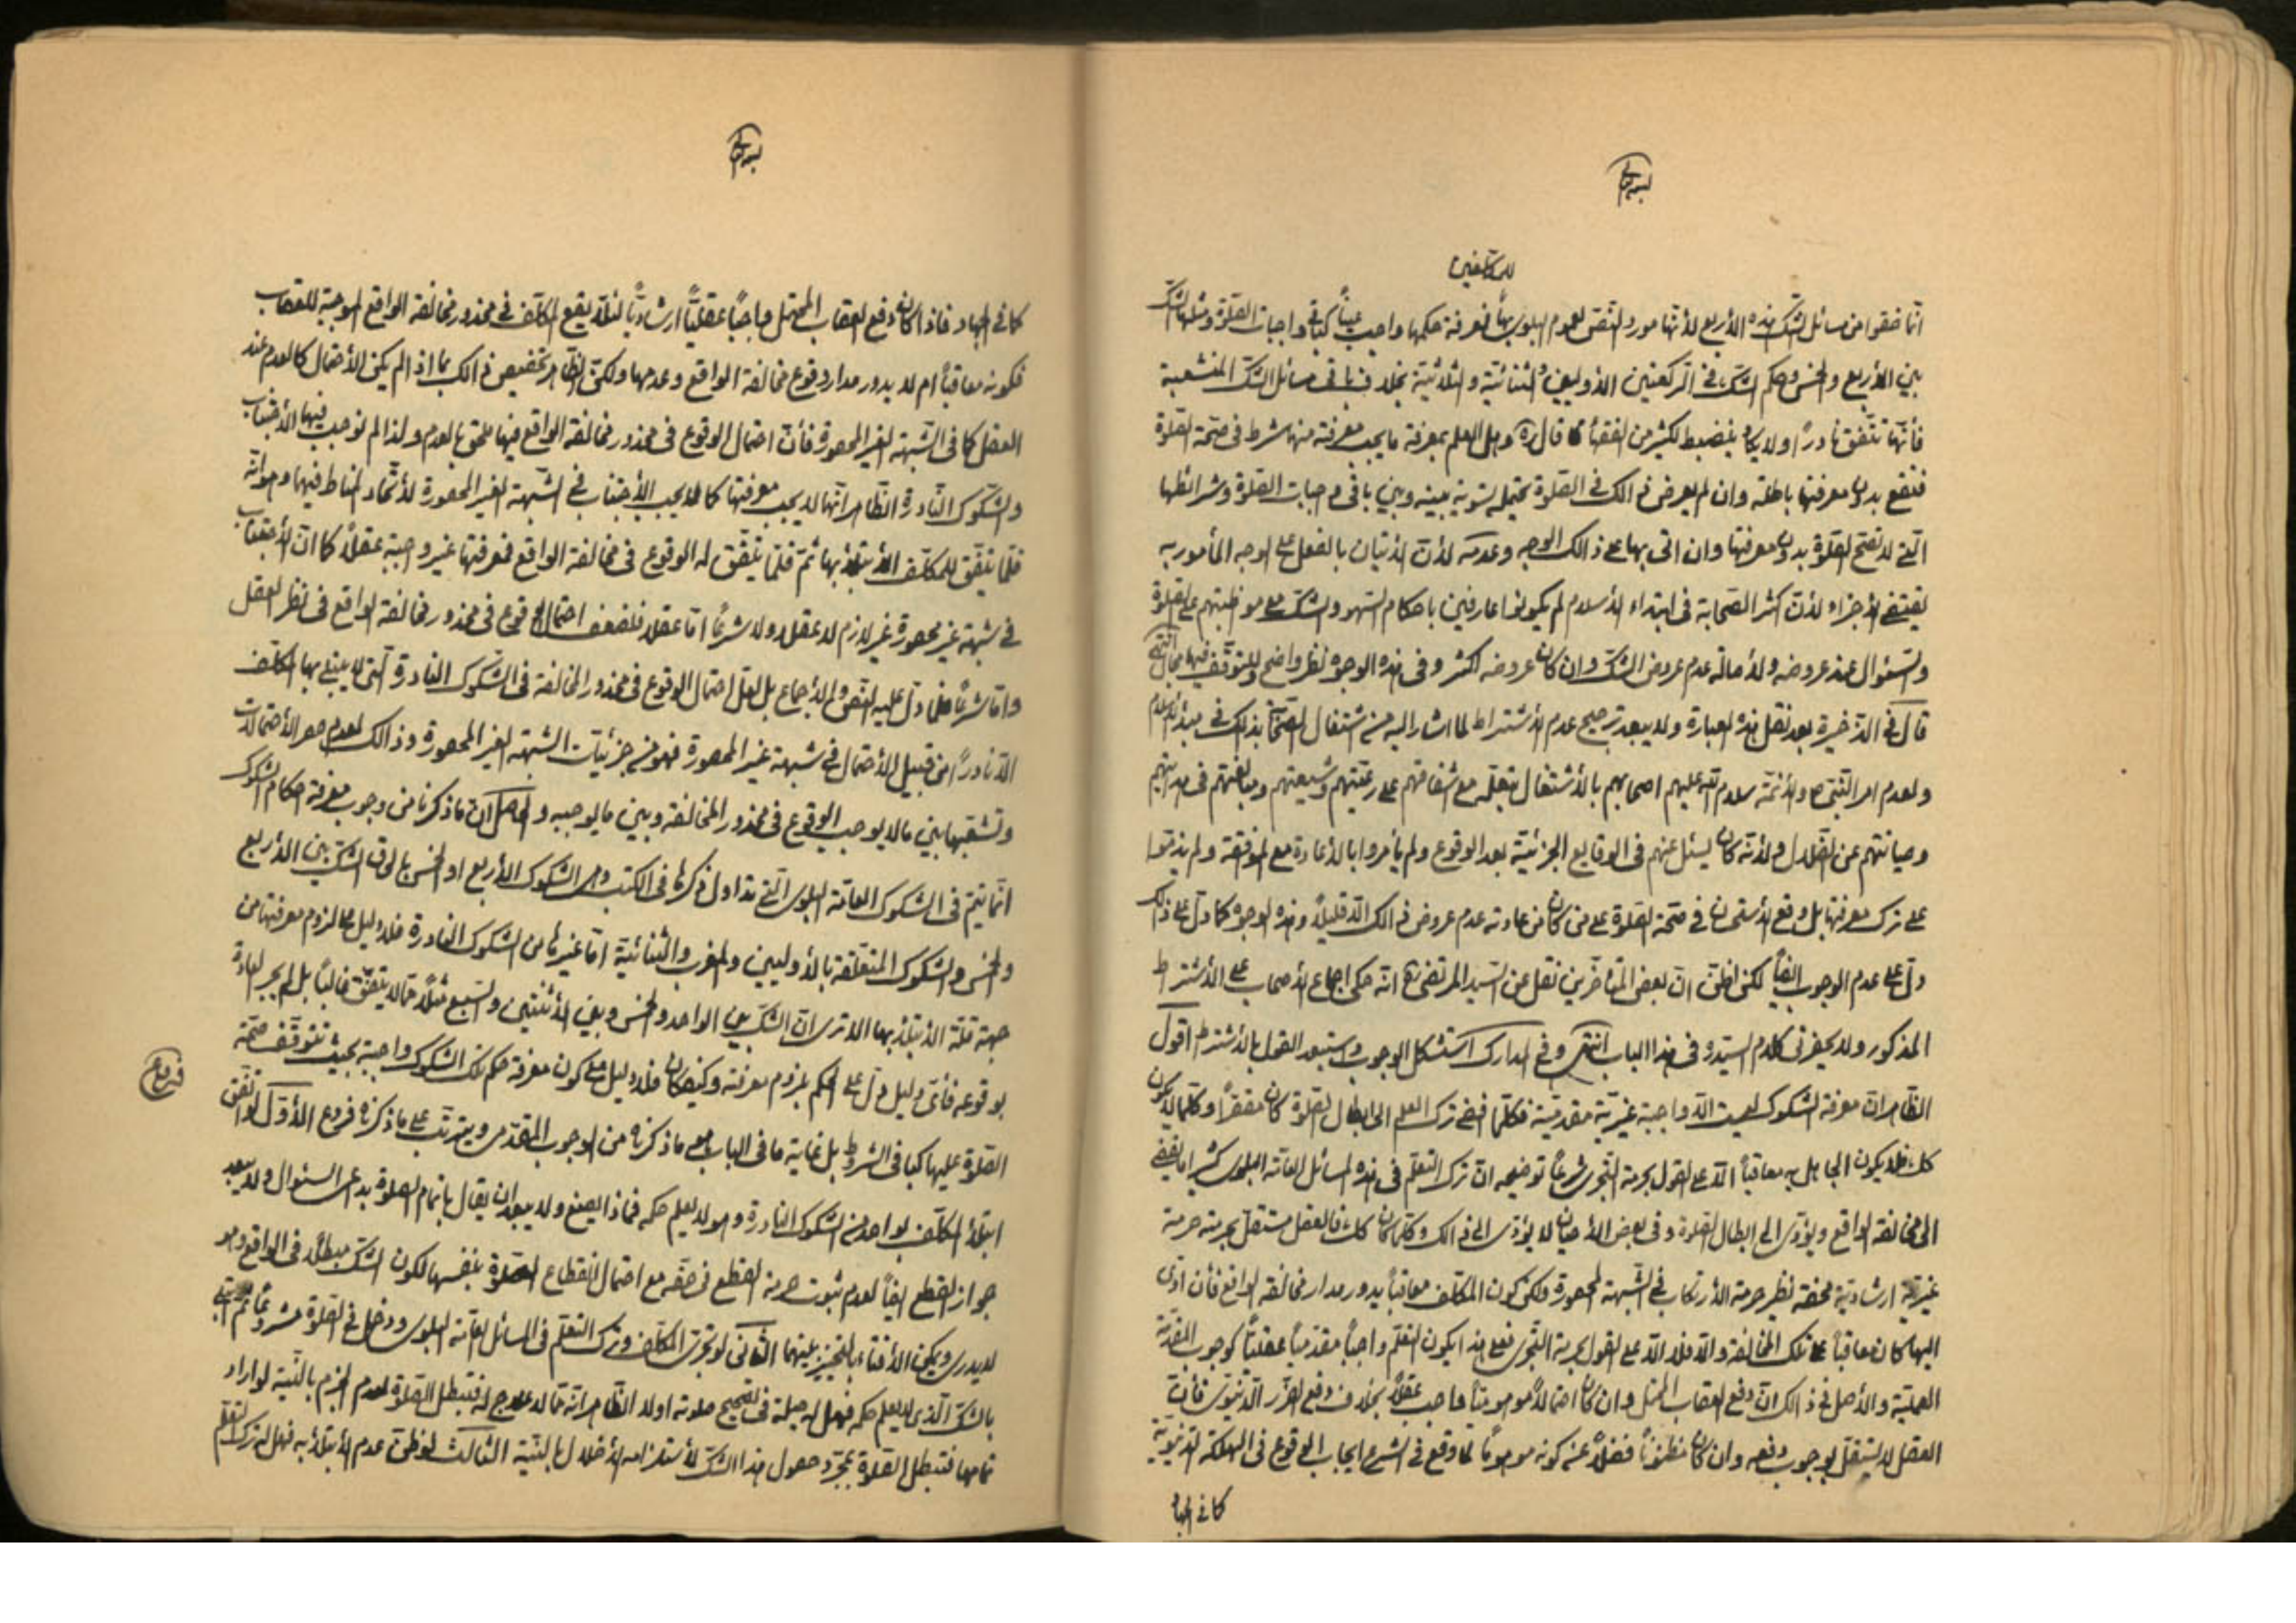 للمكلفين
انما خصّوا من مسائل الشك هذه الأربع لأنها مورد النص لعموم البلوى بها فمعرفة حكمها واجب عيناً كباقي واجبات الصلوة ومثلها الشك
بين الأربع والخمس وحكم الشك في الركعتين الأوليين والثنائية والثلاثية بخلاف باقي مسائل الشك المتشعبة
فأنها تتفق نادراً ولا يكاد ينضبط لكثير من الفقهاء كما قال ره وهل العلم بمعرفة ما يجب معرفته منها شرط في صحة الصلوة
فتقع بدون معرفتها باطلة وان لم يعرض ذالك في الصلوة يحتمله لتسويته بينه وبين باقي واجبات الصلوة وشرائطها
التي لا تصح الصلوة بدون معرفتها وان اتى بها على ذالك الوجه وعدمه لأن الأتيان بالفعل على الوجه المأمور به
يقتضي الأجزاء لأن اكثر الصحابة في ابتداء الأسلام لم يكونوا عارفين باحكام السهو والشك مع مواظبتهم على الصلوة
والسئوال عند عروضه ولأصالة عدم عروض الشك وان كان عروضه اكثر وفي هذه الوجوه نظر واضح وللتوقف فيها مجال انتهى
قال في الذخيرة بعد نقل هذه العبارة ولا يبعد ترجيح عدم الأشتراط لما اشار اليه من اشتغال الصحابة بذلك في مبدء الأسلام
ولعدم امر النبي ص والأئمة سلام الله عليهم اصحابهم بالأشتغال بتعلمه مع شفاقتهم على رعيتهم وشيعتهم ومبالغتهم في هدايتهم
وصيانتهم عن الضلال ولأنه كان يسئل عنهم في الوقايع الجزئية بعد الوقوع ولم يأمروا بالأعادة مع الموافقة ولم يذموا
على ترك معرفتها بل وقع الأستحسان في صحة الصلوة على من كان من عادته عدم عروض ذالك الا قليلاً وهذه الوجوه كما دل على ذالك
دل على عدم الوجوب ايضاً لكني اظن ان بعض المتأخرين نقل عن السيد المرتضى ره انه حكى اجماع الأصحاب على الأشتراط
المذكور ولا يحضرني كلام السيد في هذا الباب انتهى وفي المدارك استشكل الوجوب واستبعد القول بالأشتراط اقول
الظاهر ان معرفة الشكوك ليست الا واجبة غيرية مقدمية فكلما افضى ترك العلم الى ابطال الصلوة كان مقصراً وكلما لا يكون
كك فلا يكون الجاهل به معاقباً الا على القول بحرمة التجري شرعاً توضيحه ان ترك التعلم في هذه المسائل العامة البلوى كثيراما يفضي
الى مخالفة الواقع ويؤدى الى ابطال الصلوة وفي بعض الأحيان لا يؤدى الى ذالك وكلما كان كك فالعقل مستقل بحرمته حرمة
غيرية ارشادية محضة نظير حرمة الأرتكاب في الشبهة المحصورة ولكن كون المكلف معاقباً يدور مدار مخالفة الواقع فأن ادى
اليها كان معاقباً على تلك المخالفة والا فلا الا على القول بحرمة التجري فعلى هذا يكون التعلم واجباً مقدمياً عقلياً كوجوب المقدمة
العلمية والأصل في ذالك ان دفع العقاب المحتمل وان كان احتمالاً موهومياً واجب عقلاً بخلاف دفع الضرر الدنيوى فأن
العقل لا يستقل بوجوب دفعه وان كان مظنوناً فضلاً عن كونه موهوماً لما وقع في الشرع ايجاب الوقوع في المهلكة الدنيوية
كما في الجهاد
كما في الجهاد فاذا كان دفع العقاب المحتمل واجباً عقلياً ارشادياً لئلا يقع المكلف في محذور مخالفة الواقع الموجبة للعقاب
فكونه معاقباً ام لا يدور مدار وقوع مخالفة الواقع وعدمها ولكن الظاهر تخصيص ذالك بما اذا لم يكن الأحتمال كالعدم عند
العقل كما في الشبهة الغير المحصورة فأن احتمال الوقوع في محذور مخالفة الواقع فيها ملحق بالعدم ولذا لم نوجب فيها الأجتناب
والشكوك النادرة الظاهر انها لا يجب معرفتها كما لا يجب الأجتناب في الشبهة الغير المحصورة لأتحاد المناط فيهما وهو انه
قلما يتفق للمكلف الأبتلاء بها ثم قلما يتفق له الوقوع في مخالفة الواقع فمعرفتها غير واجبة عقلاً كما ان الأجتناب
في شبهة غير محصورة غير لازم لا عقلا ولا شرعاً اما عقلا فلضعف احتمال الوقوع في محذور مخالفة الواقع في نظر العقل
واما شرعاً فلما دل عليه النص والأجماع بل لعل احتمال الوقوع في محذور المخالفة في الشكوك النادرة التي لا يبتلى بها المكلف
الا نادراً من قبيل الأحتمال في شبهة غير المحصورة فهو من جزئيات الشبهة الغير المحصورة وذالك لعدم حصر الأحتمالات
وتشعبها بين ما لا يوجب الوقوع في محذور المخالفة وبين ما يوجبه والحاصل ان ماذكرنا من وجوب معرفة احكام الشكوك
انما يتم في الشكوك العامة البلوى التي تداول ذكرها في الكتب وهى الشكوك الأربع او الخمس بالحاق الشك بين الأربع
والخمس والشكوك المتعلقة بالأوليين والمغرب والثنائية اما غيرها من الشكوك النادرة فلا دليل على لزوم معرفتها من
جهة قلة الأبتلاء بها الا ترى ان الشك بين الواحد والخمس وبين الأثنتين والسبع مثلاً مما لا يتفق غالباً بل لم يجر العادة
بوقوعه فأى دليل دل على الحكم بلزوم معرفته وكيف كان فلا دليل على كون معرفة حكم تلك الشكوك واجبة بحيث تتوقف صحة
الصلوة عليها كما في الشروط بل غاية ما في الباب هو ماذكرناه من الوجوب المقدمي ويترتب على ماذكرناه فروع الأول لو اتفق
فروع
ابتلاء المكلف بواحد من الشكوك النادرة وهو لا يعلم حكمه فماذا يصنع ولا يبعد ان يقال باتمام الصلوة بداعى السئوال ولا يبعد
جواز القطع ايضاً لعدم ثبوت حرمة القطع في حقه مع احتمال انقطاع الصلوة بنفسها لكون الشك مبطلاً في الواقع وهو
لا يدرى ويمكن الأفتاء بالتخيير بينهما الثاني لو تجرى المكلف وترك التعلم في المسائل العامة البلوى ودخل في الصلوة مشروعاً ثم ابتلى
بالشك الذى لا يعلم حكمه فهل له حيلة في تصحيح صلوته اولا الظاهر انه مما لا علاج له فتبطل الصلوة لعدم الجزم بالنية لو اراد
تمامها فتبطل الصلوة بمجرد حصول هذا الشك لأستلزامه الأخلال بالنية الثالث لو ظن عدم الأبتلاء به فهل له ترك التعلم